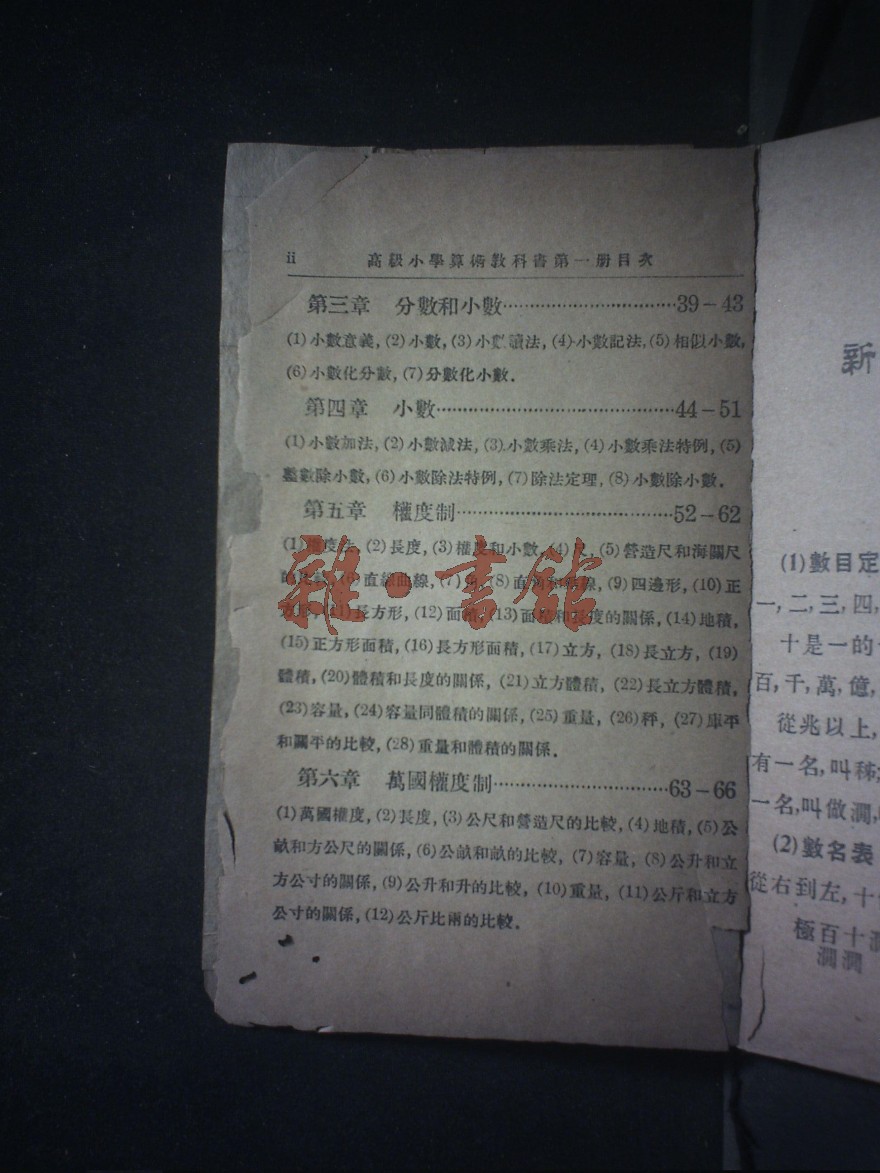 ii 高級小學算術教科書第一册目次
第三章 分數和小數……39－43
(1)小數意義，(2)小數，(3)小數讀法，(4)小數記法，(5)相似小數，
(6)小數化分數，(7)分數化小數．
第四章 小數……44－51
(1)小數加法，(2)小數減法，(3)小數乘法，(4)小數乘法特例，(5)
整數除小數，(6)小數除法特例，(7)除法定理，(8)小數除小數．
第五章 權度制……52－62
(1)權度法，(2)長度，(3)權度和小數，(4)尺，(5)營造尺和海關尺
的比較，(6)直線曲線，(7)角，(8)直角和垂線，(9)四邊形，(10)正
方形，(11)長方形，(12)面積，(13)面積和長度的關係，(14)地積，
(15)正方形面積，(16)長方形面積，(17)立方，(18)長立方，(19)
體積，(20)體積和長度的關係，(21)立方體積，(22)長立方體積，
(23)容量，(24)容量同體積的關係，(25)重量，(26)秤，(27)庫平
和關平的比較，(28)重量和體積的關係．
第六章 萬國權度制……63－66
(1)萬國權度，(2)長度，(3)公尺和營造尺的比較，(4)地積，(5)公
畝和方公尺的關係，(6)公畝和畝的比較，(7)容量，(8)公升和立
方公寸的關係，(9)公升和升的比較，(10)重量，(11)公斤和立方
公寸的關係，(12)公斤比兩的比較．
雜·書館
新
(1)數目定
一，二，三，四，
十是一的
百，千，萬，億，
從兆以上，
有一名，叫秭
一名，叫做澗，
(2)數名表
從右到左，十
極百十澗
澗澗